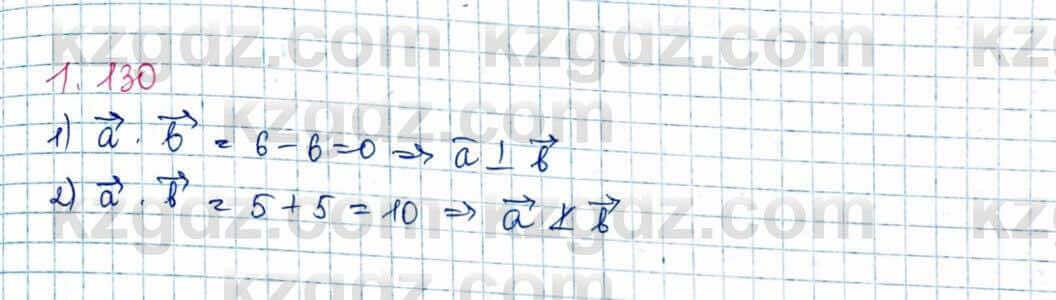 kzgdz.com kzgdz.com kz
1. 130
kzgdz.com
1) \vec{a} · \vec{b} = 6 − 6 = 0 ⇒ \vec{a} ⊥ \vec{b}
2) \vec{a} · \vec{b} = 5 + 5 = 10 ⇒ \vec{a} ⊥̸ \vec{b}
kzgdz.com kzgdz.com kz
kzgdz.com